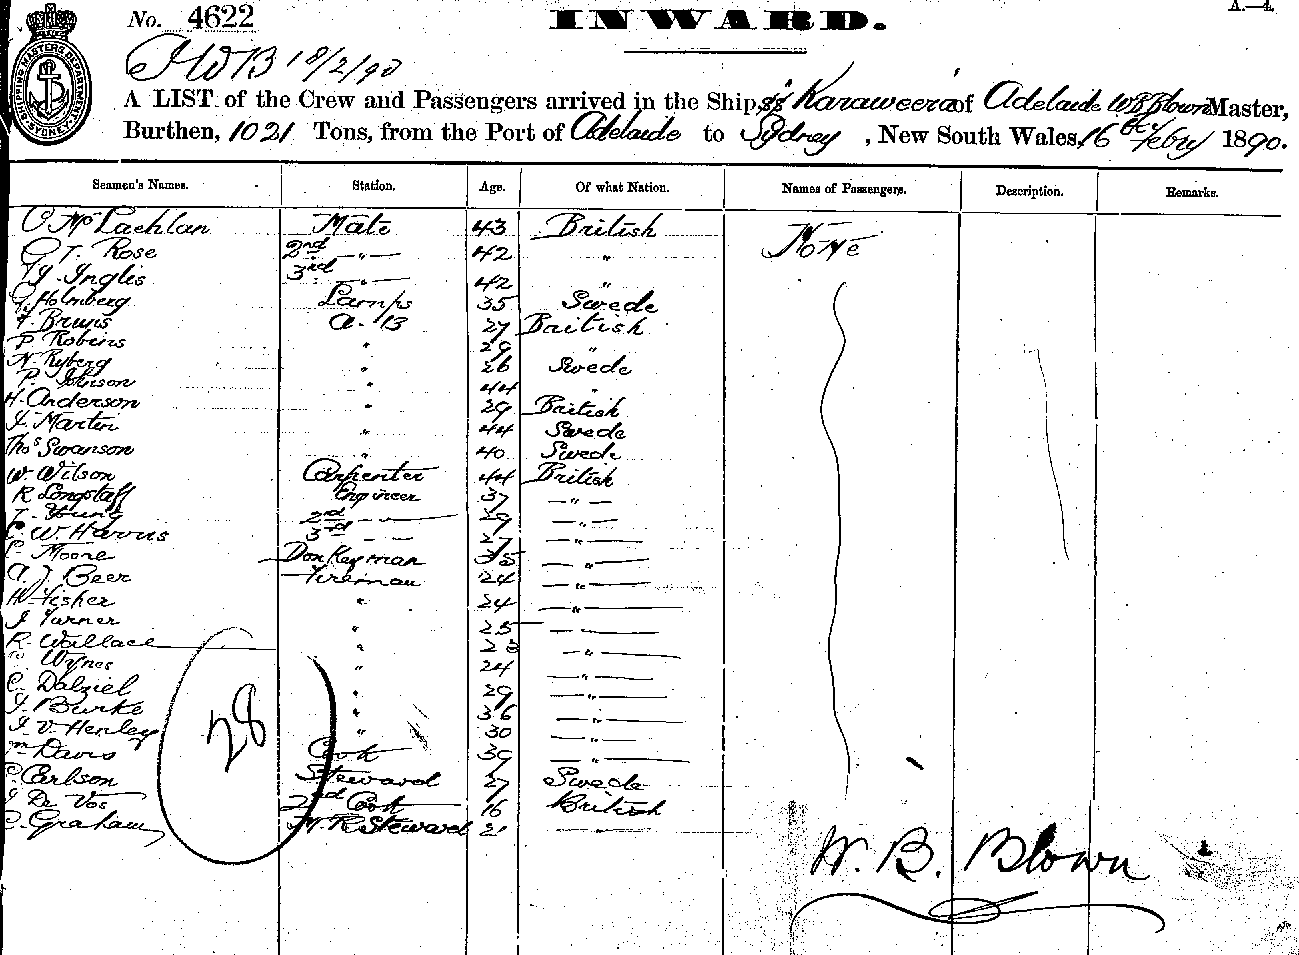 No. 4622 INWARD. A.—4.
SHIPPING MASTERS DEPARTMENT SYDNEY
18/2/90
A LIST of the Crew and Passengers arrived in the Ship, ss Karaweera of Adelaide W B Blown Master,
Burthen, 1021 Tons, from the Port of Adelaide to Sydney, New South Wales, 16 Feby 1890.
Seamen's Names. Station. Age. Of what Nation. Names of Passengers. Description. Remarks.
McLachlan Mate 43 British None
Rose 2nd -"- 42 "
Inglis 3rd " 42 "
Holmberg Lamps 35 Swede
Bruns A.B 27 British
P Robins " 29 "
N. Ryberg " 26 Swede
P. Johnson " 44 "
H. Anderson " 29 British
J. Martin " 44 Swede
Thos Swanson " 40 Swede
W. Wilson Carpenter 44 British
R Longstaff Engineer 37 -"-
T. Young 2nd - - 29 -"-
C. W. Harris 3rd - - 27 -"-
C. Moore Donkeyman 35 -"-
A. J. Beer Fireman 24 -"-
W Fisher " 24 -"-
J Turner " 25 -"-
R. Wallace " 23 -"-
Wynes " 24 -"-
C. Dalziel " 29 -"-
J. Burke " 36 -"-
J. V. Henley " 30 -"-
Davis Cook 39 -"-
C. Carlson Steward 27 Swede
J De Vos 2nd Cook 16 British
C. Graham M. R Steward 21
28
W. B. Blown